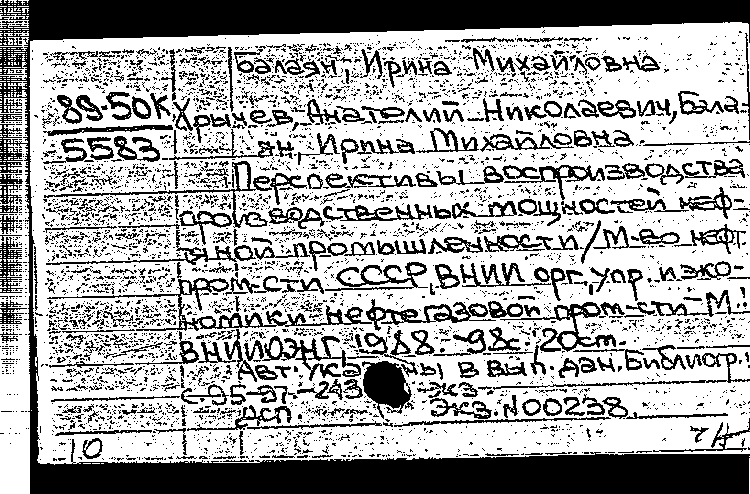 Балаян, Ирина Михайловна
89-50К
5583
Хрычев, Анатолий Николаевич, Бала-
ян, Ирина Михайловна.
Перспективы воспроизводства
производственных мощностей неф-
тяной промышленности / М-во нефт.
пром-сти СССР, ВНИИ орг., упр. и эко-
номики нефтегазовой пром-сти - М.:
ВНИИОЭНГ, 1988. - 98с.; 20см.
Авт. ны в вып. дан. Библиогр.:
с. 95-97. - 243 - экз
ДСП. Экз. N00238.
10